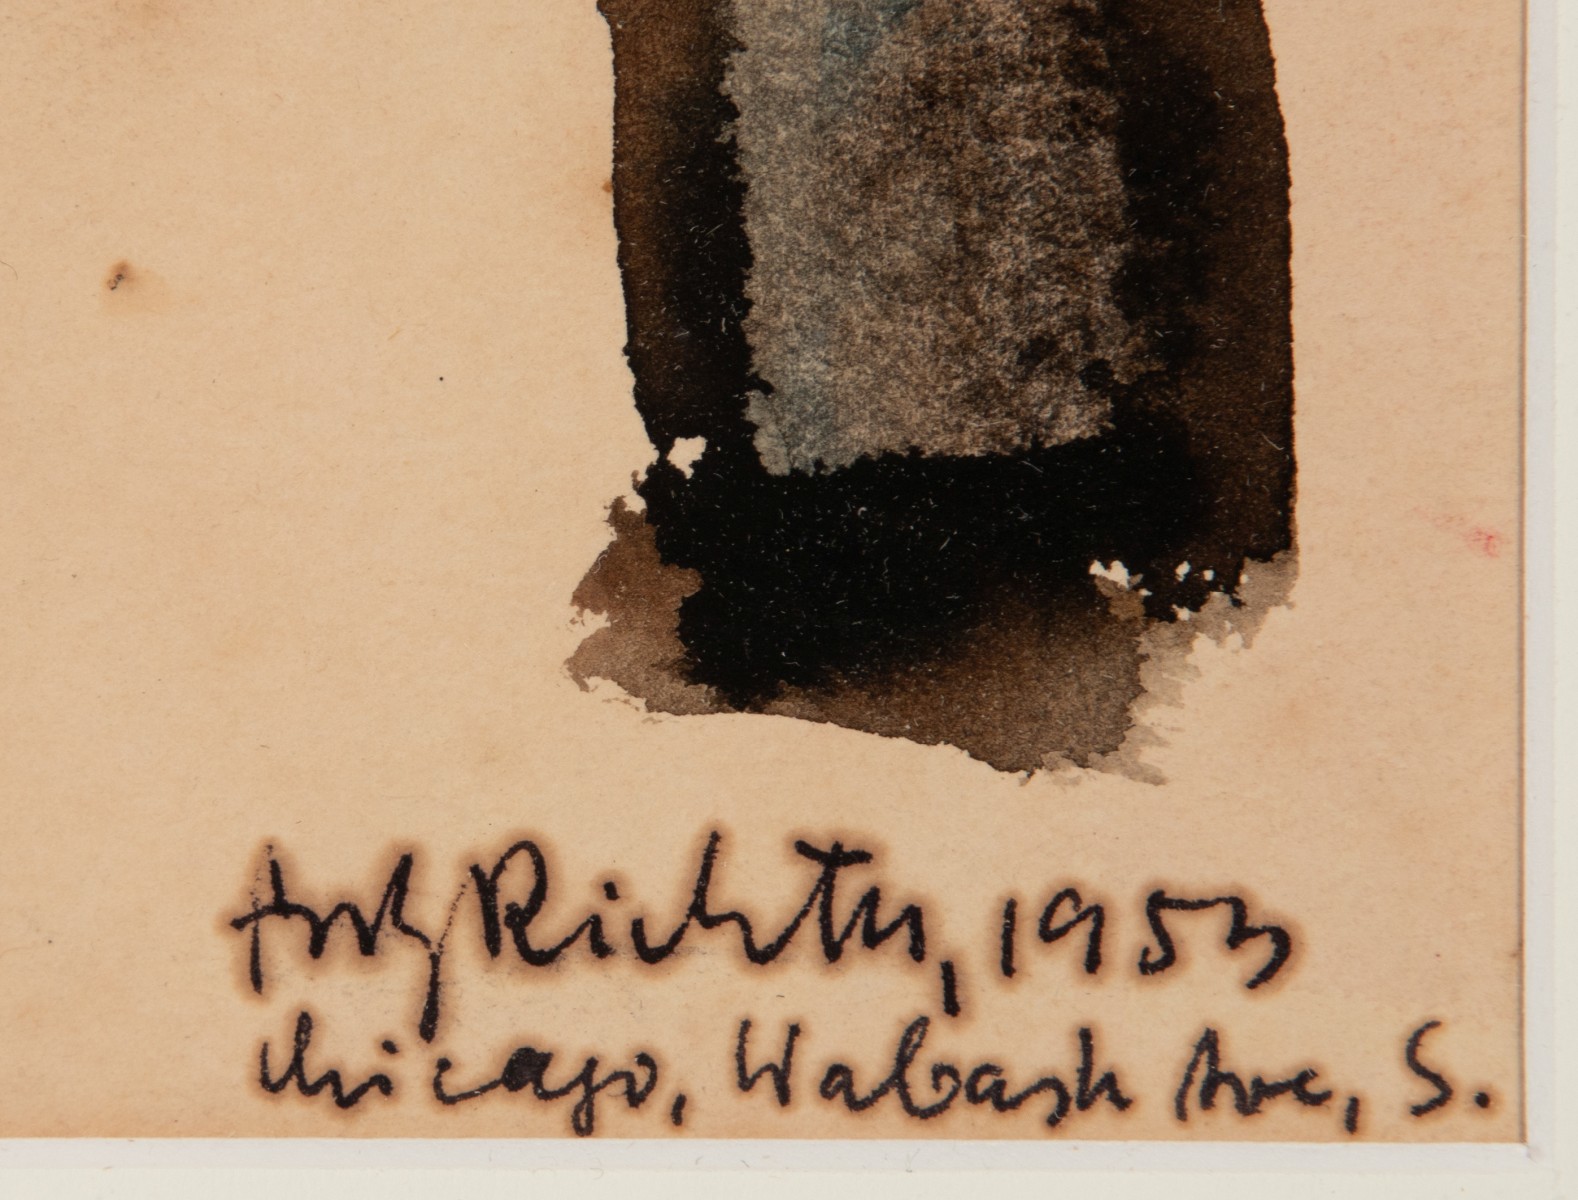 Fritz Richter, 1953
Chicago, Wabash Ave, S.